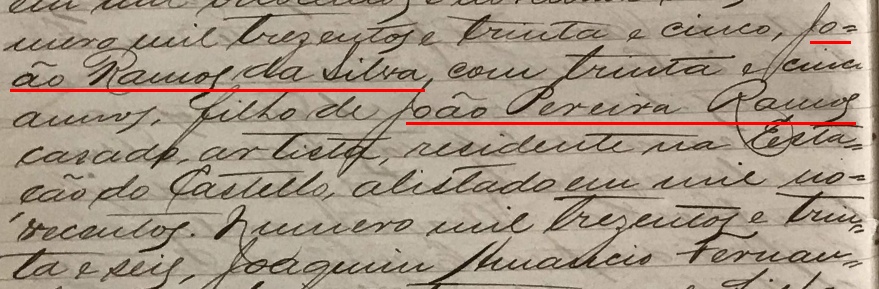 mero mil trezentos e trinta e cinco, Jo=
ão Ramos da Silva, com trinta e cinco
annos, filho de João Pereira Ramos
casado, artista, residente na Esta=
ção do Castello, alistado em mil no=
vecentos. Numero mil trezentos e trin=
ta e seis, Joaquim Amancio Fernan=